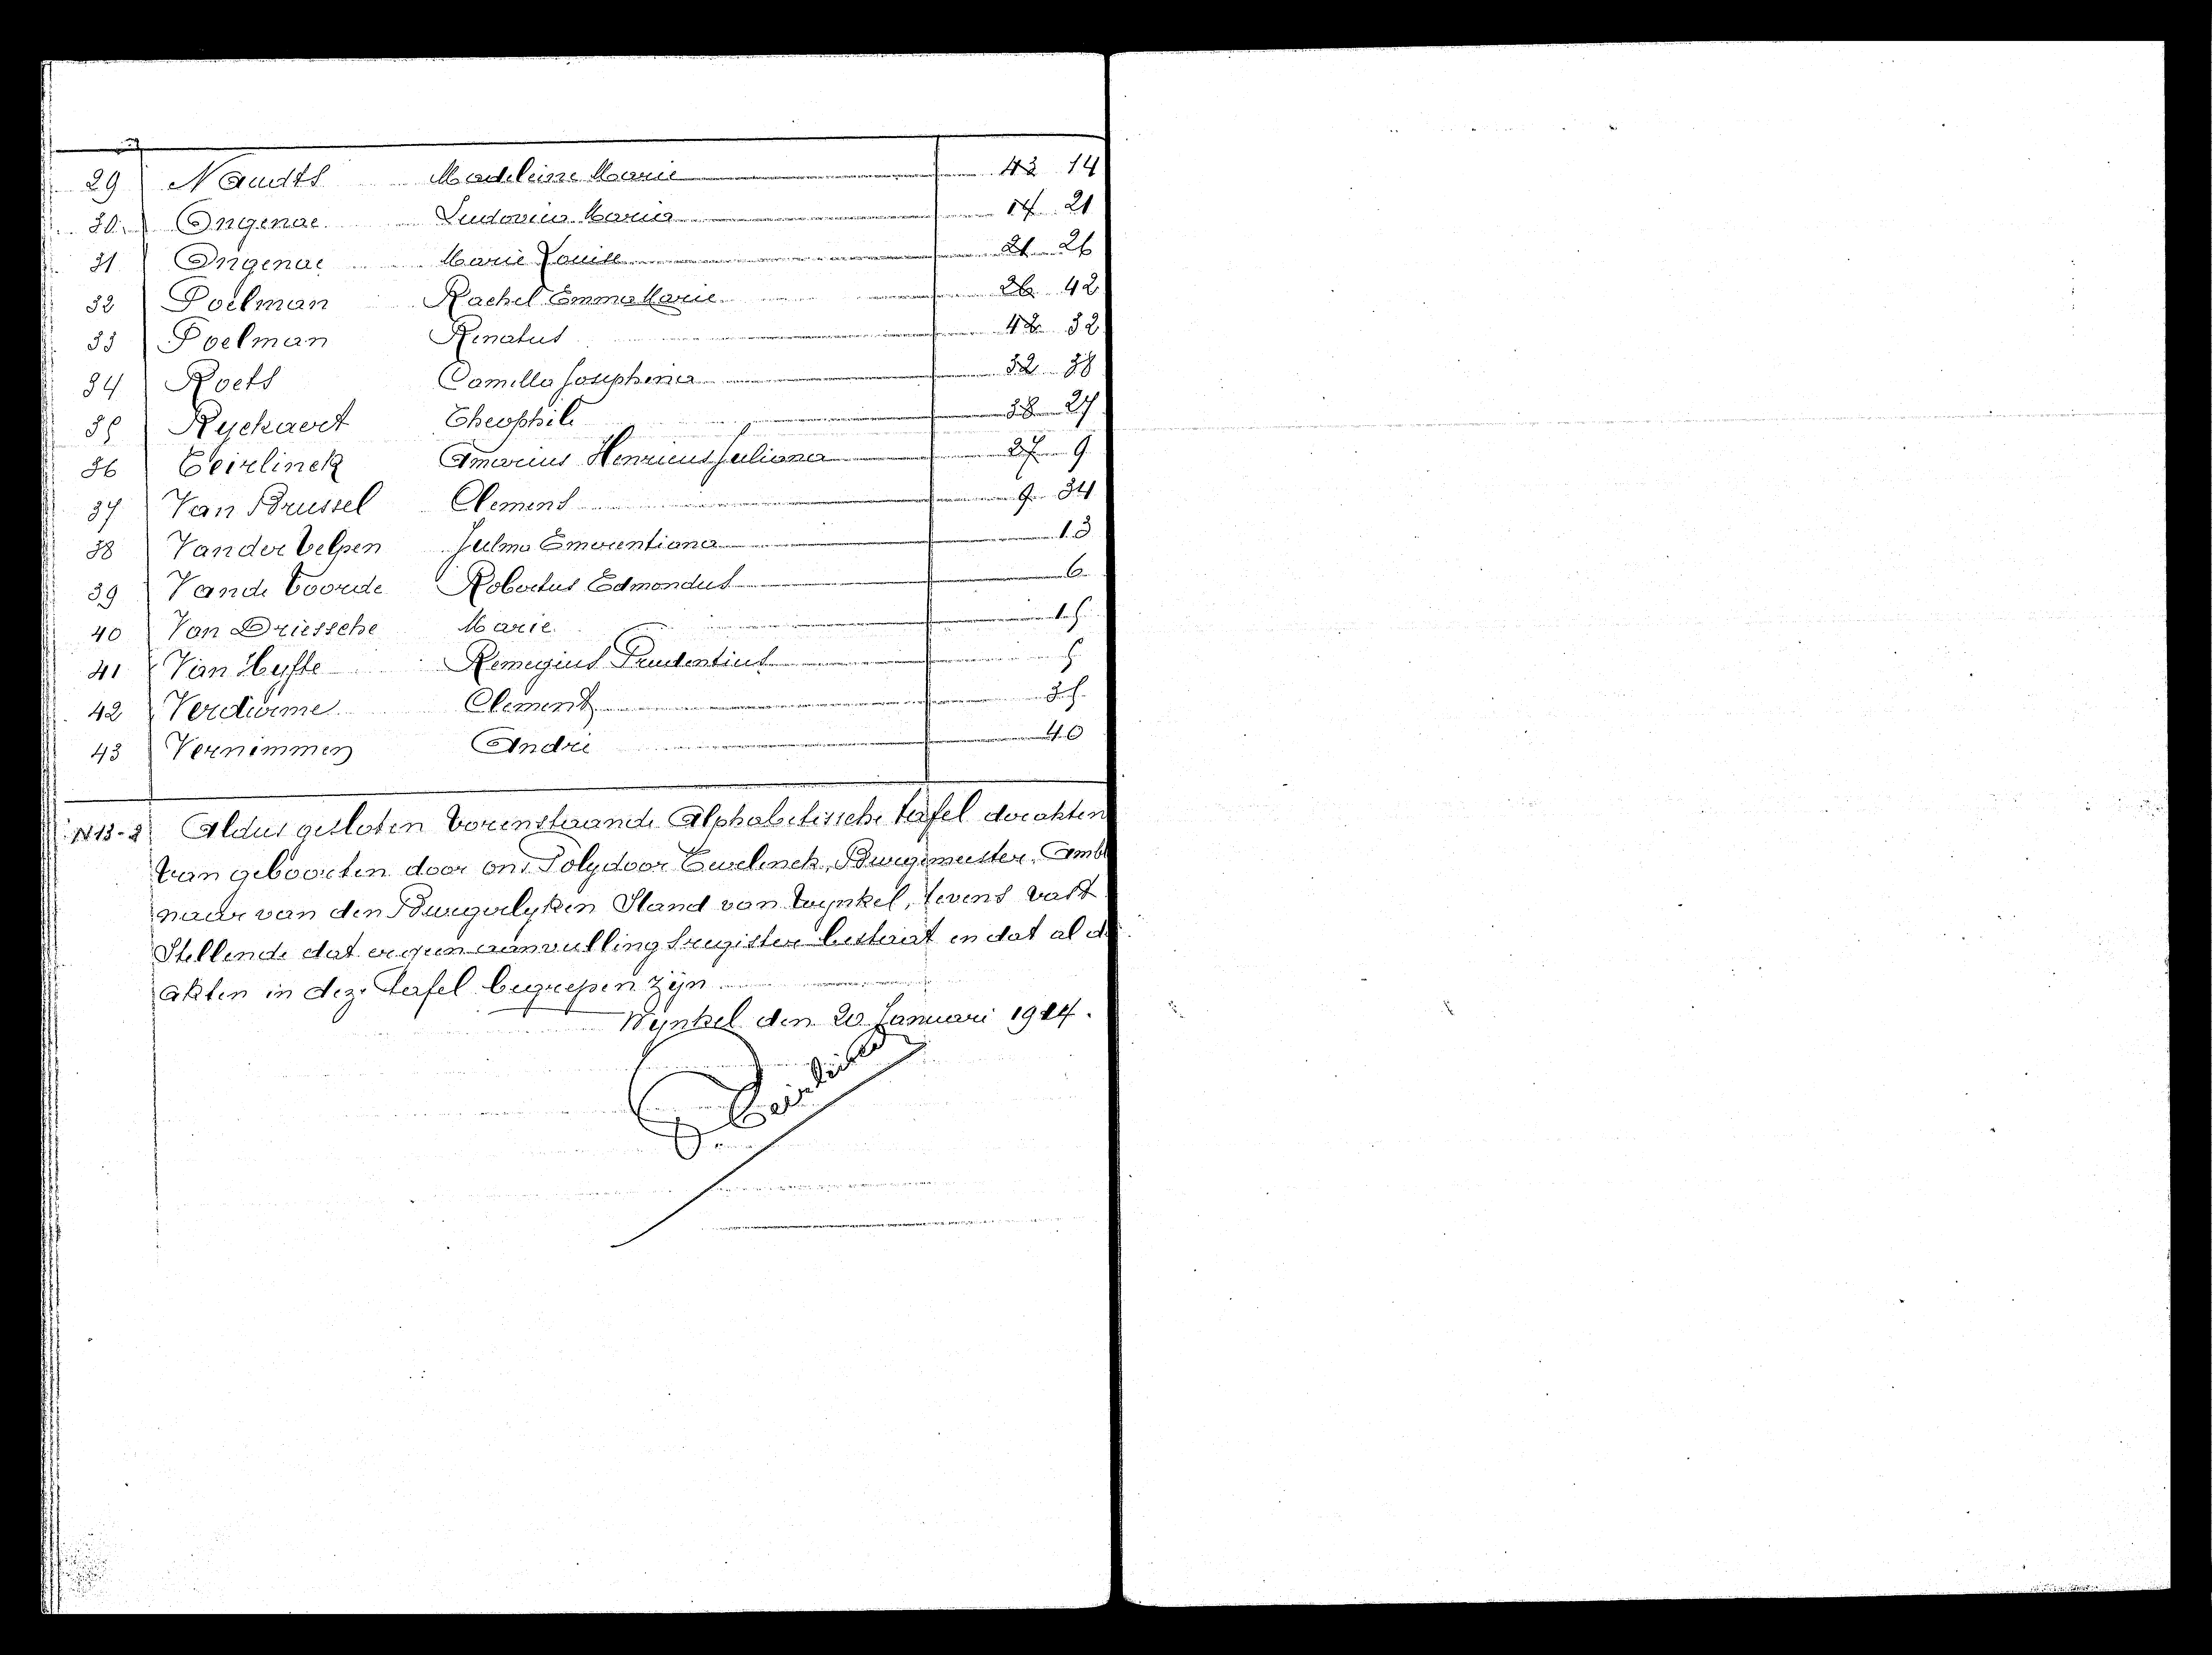 29 Naudts Madeleine Marie 43 14
30. Ongenae Ludovica Maria 14 21
31 Ongenae Marie Louise 21 26
32 Poelman Rachel Emma Marie 26 42
33 Poelman Renatus 42 32
34 Roets Camilla Josephina 32 38
35 Ryckaert Theophile 38 27
36 Teirlinck Amarius Henricus Juliana 27 9
37 Van Brussel Clemens 9 34
38 Vander Velpen Julma Emerentiana 13
39 Vande Voorde Robertus Edmondus 6
40 Van Driessche Marie 15
41 Van Hyfte Remegius Prudentius 5
42 Verdurme Clement 35
43 Vernimmen André 40
N 13-2 Aldus gesloten vorenstaande Alphabetissche tafel der akten
van geboorten door ons Polydoor Teirlinck, Burgemeester, Ambt
naar van den Burgerlyken Stand van Wynkel, tevens vast
Stellende dat er geen aanvullingsregister bestaat en dat al de
akten in deze tafel begrepen zyn
Wynkel den 20 Januari 1914.
P. Teirlinck